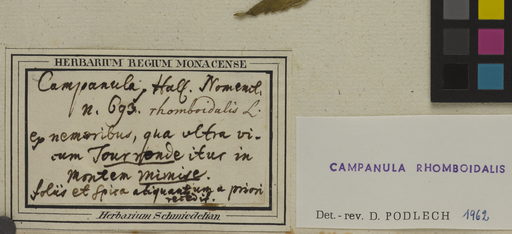 HERBARIUM REGIUM MONACENSE
Campanula, Hall. Nomencl.
n. 693. rhomboidalis L.
ex nemoribus, qua ultra vi-
cum Tourronde itur in
montem mimise.
foliis et spica aliquantum a priori
recedit.
Herbarium Schmiedelian
CAMPANULA RHOMBOIDALIS
Det.- rev. D. PODLECH 1962